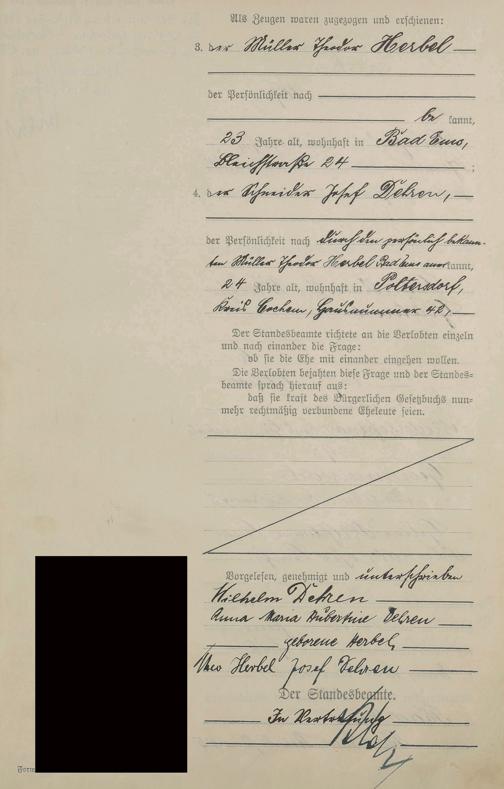 Als Zeugen waren zugezogen und erschienen:
3. der Müller Theodor Herbel
der Persönlichkeit nach
be kannt,
23 Jahre alt, wohnhaft in Bad Ems,
Bleichstraße 24 ;
4. der Schneider Josef Dehren,
der Persönlichkeit nach durch den persönlich bekann-
ten Müller Theodor Herbel Bad Ems anerkannt,
24 Jahre alt, wohnhaft in Poltersdorf,
Kreis Cochem, Hausnummer 42,
Der Standesbeamte richtete an die Verlobten einzeln
und nach einander die Frage:
ob sie die Ehe mit einander eingehen wollen.
Die Verlobten bejahten diese Frage und der Standes-
beamte sprach hierauf aus:
daß sie kraft des Bürgerlichen Gesetzbuchs nun-
mehr rechtmäßig verbundene Eheleute seien.
Vorgelesen, genehmigt und unterschrieben
Wilhelm Dehren
Anna Maria Hubertine Dehren
geborene Herbel,
Herbel Josef Dehren
Der Standesbeamte.
In Vertretung
Form